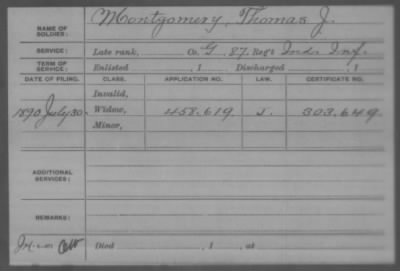 NAME OF SOLDIER: Montgomery, Thomas J.
SERVICE: Late rank, Co. G. 87. Reg't Ind. Inf.
TERM OF SERVICE: Enlisted , 1 Discharged , 1
DATE OF FILING. CLASS. APPLICATION NO. LAW. CERTIFICATE NO.
Invalid,
1890 July 30. Widow, 458.619 J. 303.649
Minor,
ADDITIONAL SERVICES:
REMARKS:
Died , 1 , at